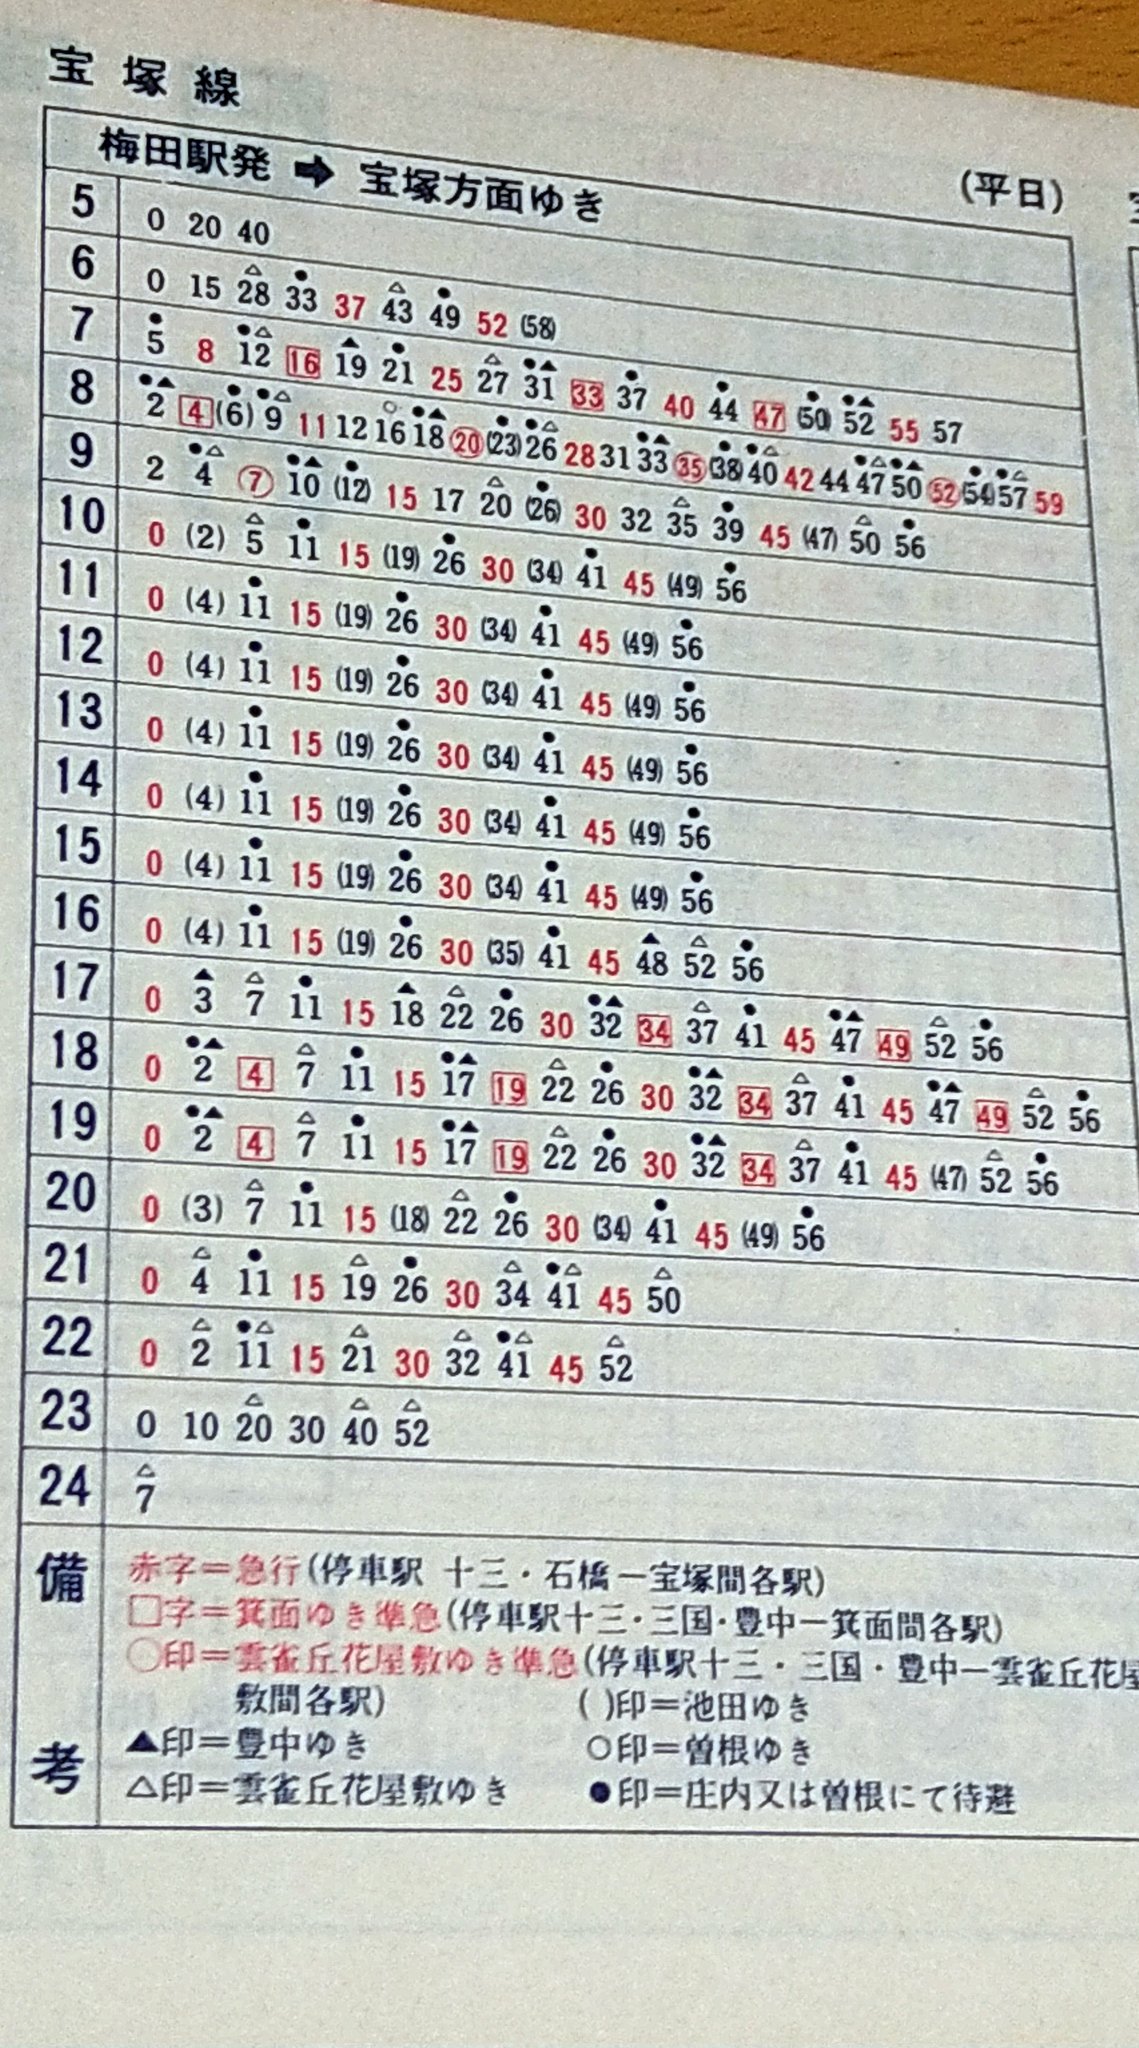 宝塚線
梅田駅発 ➡ 宝塚方面ゆき (平日)
5 0 20 40
6 0 15 △28 ●33 37 △43 ●49 52 (58)
7 ●5 8 ●△12 16 ▲19 ●21 25 △27 ●▲31 33 ●37 40 ●44 47 (●50) ●▲52 55 57
8 ●▲2 4 (●6) ●△9 11 12 ○16 ●▲18 20 (●23) ●△26 28 31 ●▲33 35 (●38) ●△40 42 44 ●△47 ●▲50 52 (●54) ●△57 59
9 2 ●△4 7 ●▲10 (●12) 15 17 △20 (●26) 30 32 △35 ●39 45 (47) △50 ●56
10 0 (2) △5 ●11 15 (19) ●26 30 (34) ●41 45 (49) ●56
11 0 (4) ●11 15 (19) ●26 30 (34) ●41 45 (49) ●56
12 0 (4) ●11 15 (19) ●26 30 (34) ●41 45 (49) ●56
13 0 (4) ●11 15 (19) ●26 30 (34) ●41 45 (49) ●56
14 0 (4) ●11 15 (19) ●26 30 (34) ●41 45 (49) ●56
15 0 (4) ●11 15 (19) ●26 30 (34) ●41 45 (49) ●56
16 0 (4) ●11 15 (19) ●26 30 (35) ●41 45 ▲48 △52 ●56
17 0 ▲3 △7 ●11 15 ▲18 △22 ●26 30 ●▲32 34 △37 ●41 45 ●▲47 49 △52 ●56
18 0 ●▲2 4 △7 ●11 15 ●▲17 19 △22 ●26 30 ●▲32 34 △37 ●41 45 ●▲47 49 △52 ●56
19 0 ●▲2 4 △7 ●11 15 ●▲17 19 △22 ●26 30 ●▲32 34 △37 ●41 45 (47) △52 ●56
20 0 (3) △7 ●11 15 (18) △22 ●26 30 (34) ●41 45 (49) ●56
21 0 △4 ●11 15 △19 ●26 30 △34 ●△41 45 △50
22 0 △2 ●△11 15 △21 30 △32 ●△41 45 △52
23 0 10 △20 30 △40 △52
24 △7
備考
赤字＝急行(停車駅 十三・石橋―宝塚間各駅)
□字＝箕面ゆき準急(停車駅十三・三国・豊中―箕面間各駅)
○印＝雲雀丘花屋敷ゆき準急(停車駅十三・三国・豊中―雲雀丘花屋
敷間各駅) ( )印＝池田ゆき
▲印＝豊中ゆき ○印＝曽根ゆき
△印＝雲雀丘花屋敷ゆき ●印＝庄内又は曽根にて待避